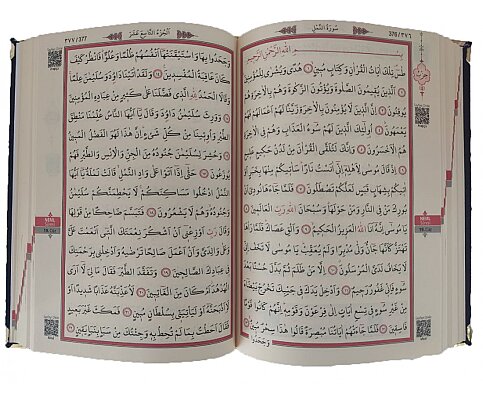 سُورَةُ النَّمْلِ 376/٣٧٦
بِسْمِ اللهِ الرَّحْمٰنِ الرَّحِيمِ
طٰسٓ تِلْكَ اٰيَاتُ الْقُرْاٰنِ وَكِتَابٍ مُبِينٍ ﴿١﴾ هُدًى وَبُشْرٰى لِلْمُؤْمِنِينَ ﴿٢﴾
اَلَّذِينَ يُقِيمُونَ الصَّلٰوةَ وَيُؤْتُونَ الزَّكٰوةَ وَهُمْ بِالْاٰخِرَةِ هُمْ
يُوقِنُونَ ﴿٣﴾ اِنَّ الَّذِينَ لَا يُؤْمِنُونَ بِالْاٰخِرَةِ زَيَّنَّا لَهُمْ اَعْمَالَهُمْ فَهُمْ
يَعْمَهُونَ ﴿٤﴾ اُولٰئِكَ الَّذِينَ لَهُمْ سُوءُ الْعَذَابِ وَهُمْ فِي الْاٰخِرَةِ هُمُ
الْاَخْسَرُونَ ﴿٥﴾ وَاِنَّكَ لَتُلَقَّى الْقُرْاٰنَ مِنْ لَدُنْ حَكِيمٍ عَلِيمٍ
﴿٦﴾ اِذْ قَالَ مُوسٰى لِاَهْلِهِ اِنِّي اٰنَسْتُ نَارًا سَاٰتِيكُمْ مِنْهَا بِخَبَرٍ اَوْ
اٰتِيكُمْ بِشِهَابٍ قَبَسٍ لَعَلَّكُمْ تَصْطَلُونَ ﴿٧﴾ فَلَمَّا جَاءَهَا نُودِيَ اَنْ
بُورِكَ مَنْ فِي النَّارِ وَمَنْ حَوْلَهَا وَسُبْحَانَ اللهِ رَبِّ الْعَالَمِينَ ﴿٨﴾
يَا مُوسٰى اِنَّهُ اَنَا اللهُ الْعَزِيزُ الْحَكِيمُ ﴿٩﴾ وَاَلْقِ عَصَاكَ فَلَمَّا رَاٰهَا
تَهْتَزُّ كَاَنَّهَا جَانٌّ وَلّٰى مُدْبِرًا وَلَمْ يُعَقِّبْ يَا مُوسٰى لَا تَخَفْ اِنِّي
لَا يَخَافُ لَدَيَّ الْمُرْسَلُونَ ﴿١٠﴾ اِلَّا مَنْ ظَلَمَ ثُمَّ بَدَّلَ حُسْنًا بَعْدَ
سُوءٍ فَاِنِّي غَفُورٌ رَحِيمٌ ﴿١١﴾ وَاَدْخِلْ يَدَكَ فِي جَيْبِكَ تَخْرُجْ بَيْضَاءَ
مِنْ غَيْرِ سُوءٍ فِي تِسْعِ اٰيَاتٍ اِلٰى فِرْعَوْنَ وَقَوْمِهِ اِنَّهُمْ كَانُوا قَوْمًا
فَاسِقِينَ ﴿١٢﴾ فَلَمَّا جَاءَتْهُمْ اٰيَاتُنَا مُبْصِرَةً قَالُوا هٰذَا سِحْرٌ مُبِينٌ ﴿١٣﴾
وَجَحَدُوا
اَلْجُزْءُ التَّاسِعَ عَشَرَ 377/٣٧٧
وَجَحَدُوا بِهَا وَاسْتَيْقَنَتْهَا اَنْفُسُهُمْ ظُلْمًا وَعُلُوًّا فَانْظُرْ كَيْفَ
كَانَ عَاقِبَةُ الْمُفْسِدِينَ ﴿١٤﴾ وَلَقَدْ اٰتَيْنَا دَاوُدَ وَسُلَيْمٰنَ عِلْمًا
وَقَالَا الْحَمْدُ لِلّٰهِ الَّذِي فَضَّلَنَا عَلٰى كَثِيرٍ مِنْ عِبَادِهِ الْمُؤْمِنِينَ
﴿١٥﴾ وَوَرِثَ سُلَيْمٰنُ دَاوُدَ وَقَالَ يَا اَيُّهَا النَّاسُ عُلِّمْنَا مَنْطِقَ
الطَّيْرِ وَاُوتِينَا مِنْ كُلِّ شَيْءٍ اِنَّ هٰذَا لَهُوَ الْفَضْلُ الْمُبِينُ
﴿١٦﴾ وَحُشِرَ لِسُلَيْمٰنَ جُنُودُهُ مِنَ الْجِنِّ وَالْاِنْسِ وَالطَّيْرِ فَهُمْ
يُوزَعُونَ ﴿١٧﴾ حَتّٰى اِذَا اَتَوْا عَلٰى وَادِ النَّمْلِ قَالَتْ نَمْلَةٌ يَا اَيُّهَا
النَّمْلُ ادْخُلُوا مَسَاكِنَكُمْ لَا يَحْطِمَنَّكُمْ سُلَيْمٰنُ
وَجُنُودُهُ وَهُمْ لَا يَشْعُرُونَ ﴿١٨﴾ فَتَبَسَّمَ ضَاحِكًا مِنْ قَوْلِهَا
وَقَالَ رَبِّ اَوْزِعْنِي اَنْ اَشْكُرَ نِعْمَتَكَ الَّتِي اَنْعَمْتَ عَلَيَّ
وَعَلٰى وَالِدَيَّ وَاَنْ اَعْمَلَ صَالِحًا تَرْضٰيهُ وَاَدْخِلْنِي بِرَحْمَتِكَ
فِي عِبَادِكَ الصَّالِحِينَ ﴿١٩﴾ وَتَفَقَّدَ الطَّيْرَ فَقَالَ مَا لِيَ لَا اَرَى
الْهُدْهُدَ اَمْ كَانَ مِنَ الْغَائِبِينَ ﴿٢٠﴾ لَاُعَذِّبَنَّهُ عَذَابًا شَدِيدًا اَوْ
لَاَاذْبَحَنَّهُ اَوْ لَيَأْتِيَنِّي بِسُلْطَانٍ مُبِينٍ ﴿٢١﴾ فَمَكَثَ غَيْرَ بَعِيدٍ
فَقَالَ اَحَطْتُ بِمَا لَمْ تُحِطْ بِهِ وَجِئْتُكَ مِنْ سَبَإٍ بِنَبَإٍ يَقِينٍ ﴿٢٢﴾
NEML